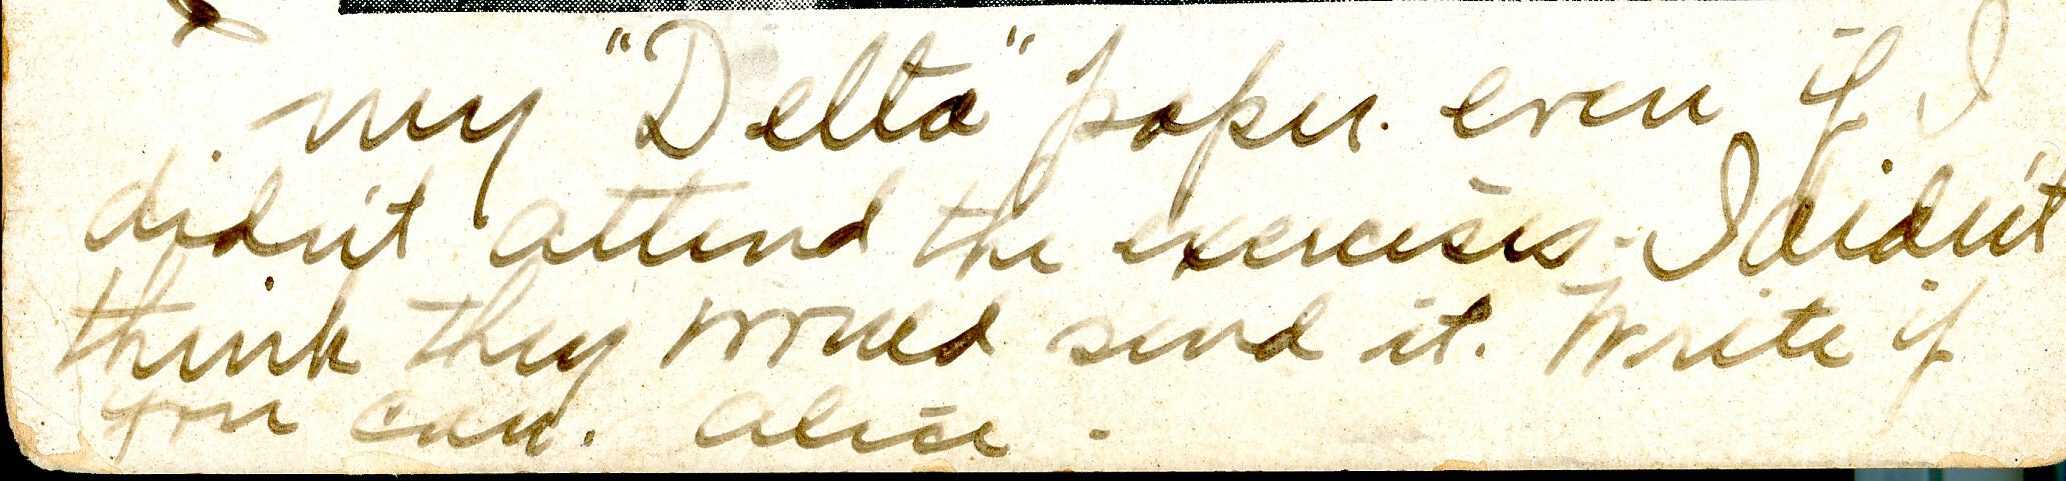 my "Delta" paper. even if I
didn't attend the exercises - I didn't
think they would send it. Write if
you can. Alice.